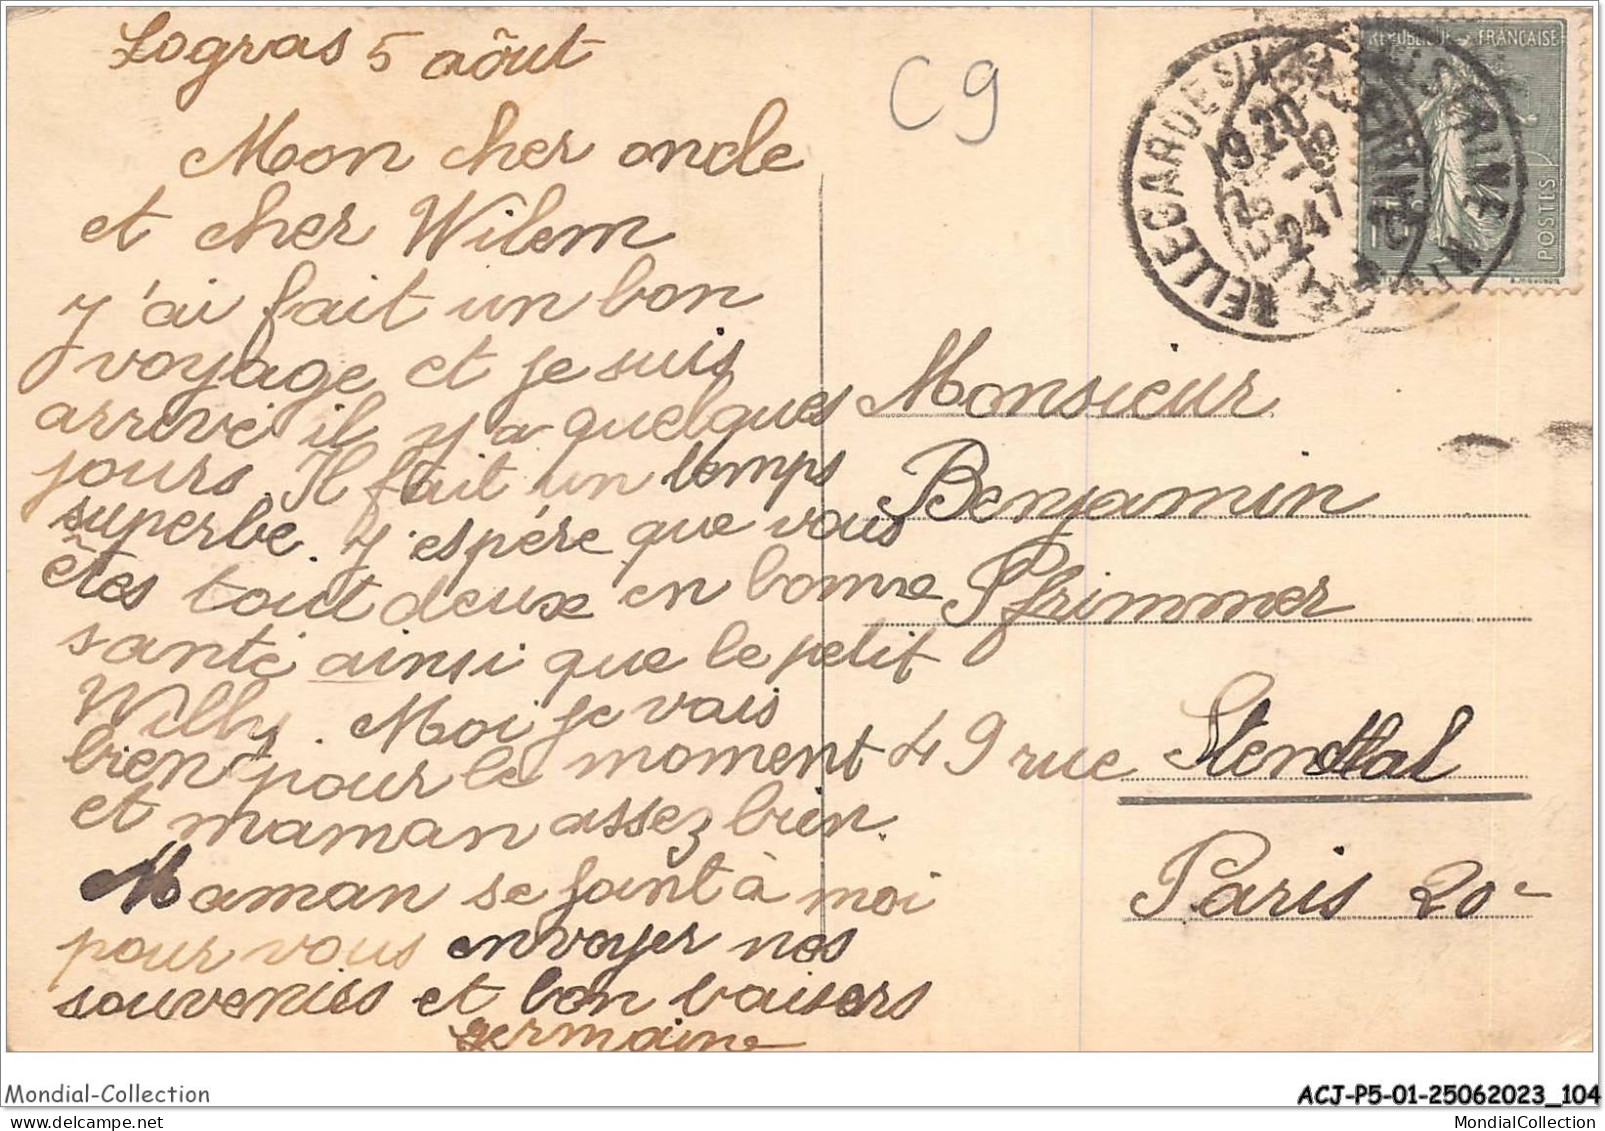 Logras 5 aôut
Mon cher oncle
et cher Wilem
J'ai fait un bon
voyage et je suis
arrivé il y a quelques
jours. Il fait un temps
superbe. J'espére que vous
êtes tout deux en bonne
santé ainsi que le petit
Willy. Moi je vais
bien pour le moment
et maman assez bien.
Maman se joint à moi
pour vous envoyer nos
souvenirs et bon baisers
germaine
C9
REPUBLIQUE FRANÇAISE
POSTES
BELLEGARDE S/V
19 20
24
Monsieur
Benjamin
Pfrimmer
49 rue Stendhal
Paris 20e
Mondial-Collection
ACJ-P5-01-25062023_104
MondialCollection